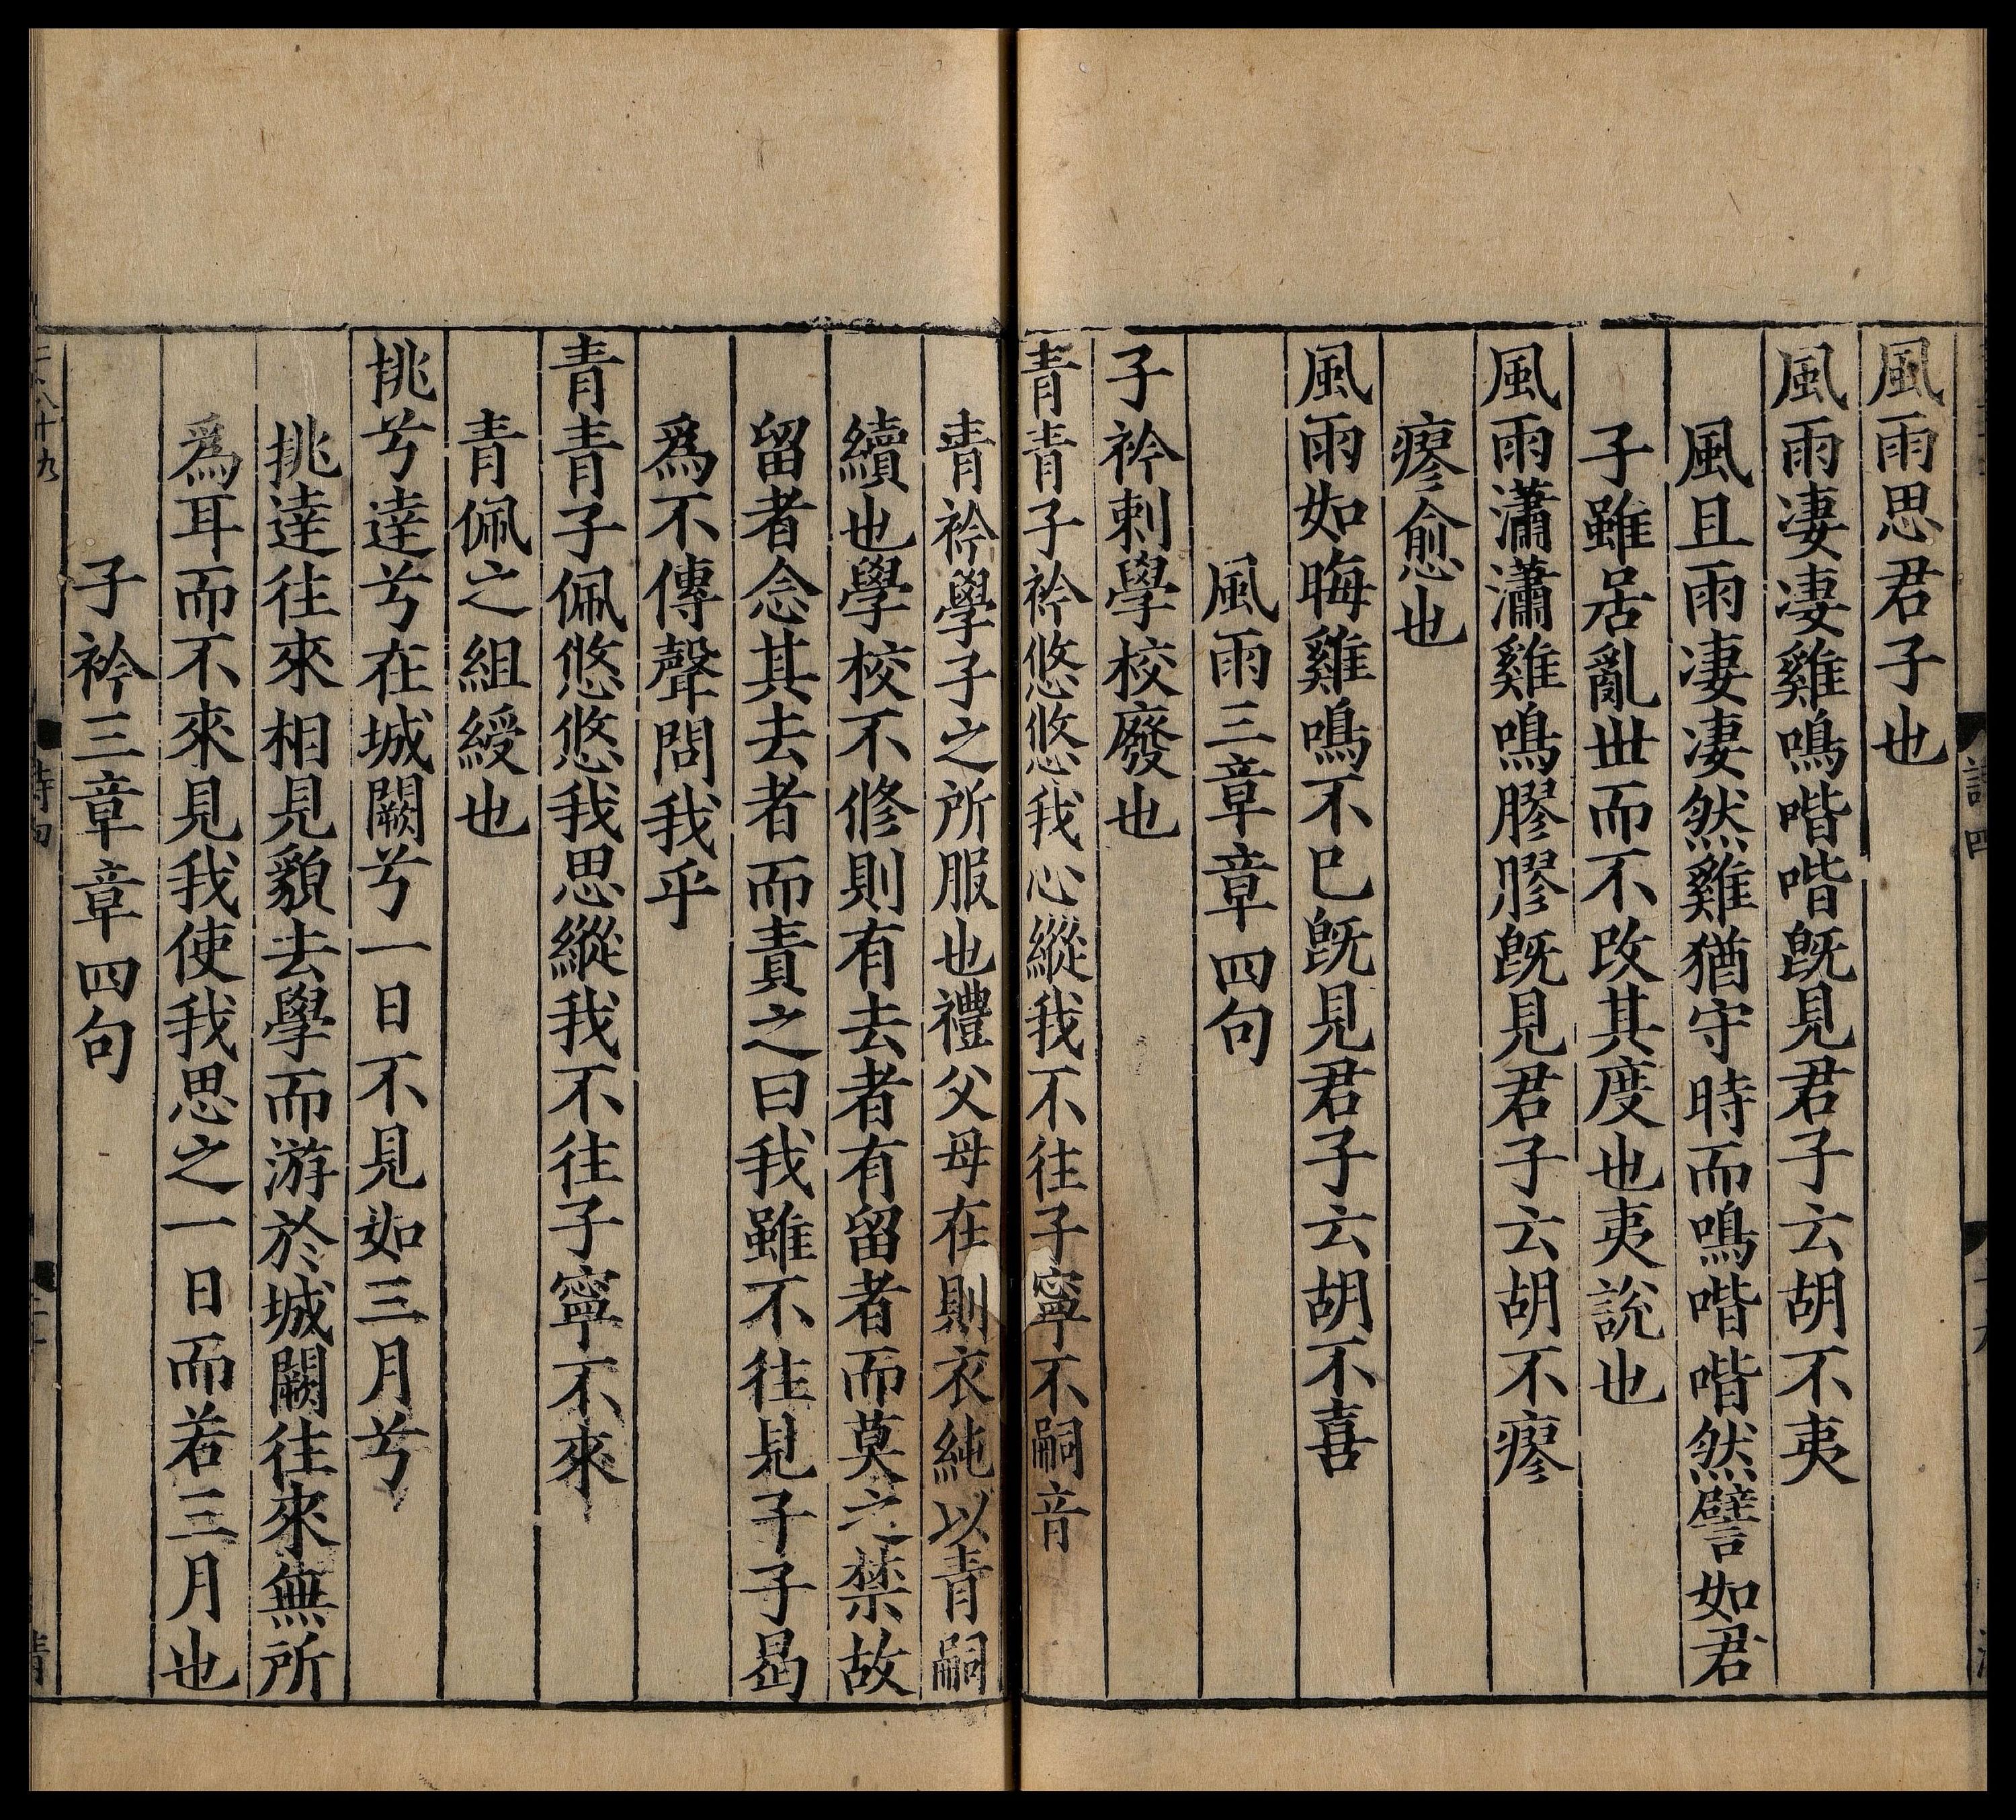 風雨思君子也
風雨凄凄雞鳴喈喈旣見君子云胡不夷
風且雨凄凄然雞猶守時而鳴喈喈然譬如君
子雖居亂世而不改其度也夷說也
風雨瀟瀟雞鳴膠膠旣見君子云胡不瘳
瘳愈也
風雨如晦雞鳴不已旣見君子云胡不喜
風雨三章章四句
子衿刺學校廢也
青青子衿悠悠我心縱我不往子寧不嗣音
青衿學子之所服也禮父母在則衣純以青嗣
續也學校不修則有去者有留者而莫之禁故
留者念其去者而責之曰我雖不往見子子曷
爲不傳聲問我乎
青青子佩悠悠我思縱我不往子寧不來
青佩之組綬也
挑兮達兮在城闕兮一日不見如三月兮
挑達往來相見貌去學而游於城闕往來無所
爲耳而不來見我使我思之一日而若三月也
子衿三章章四句